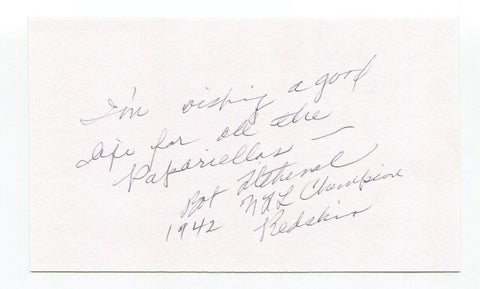 I'm wishing a good
Life for all the
Papariellas —
Bob Titchenal
1942 NFL Champions
Redskins